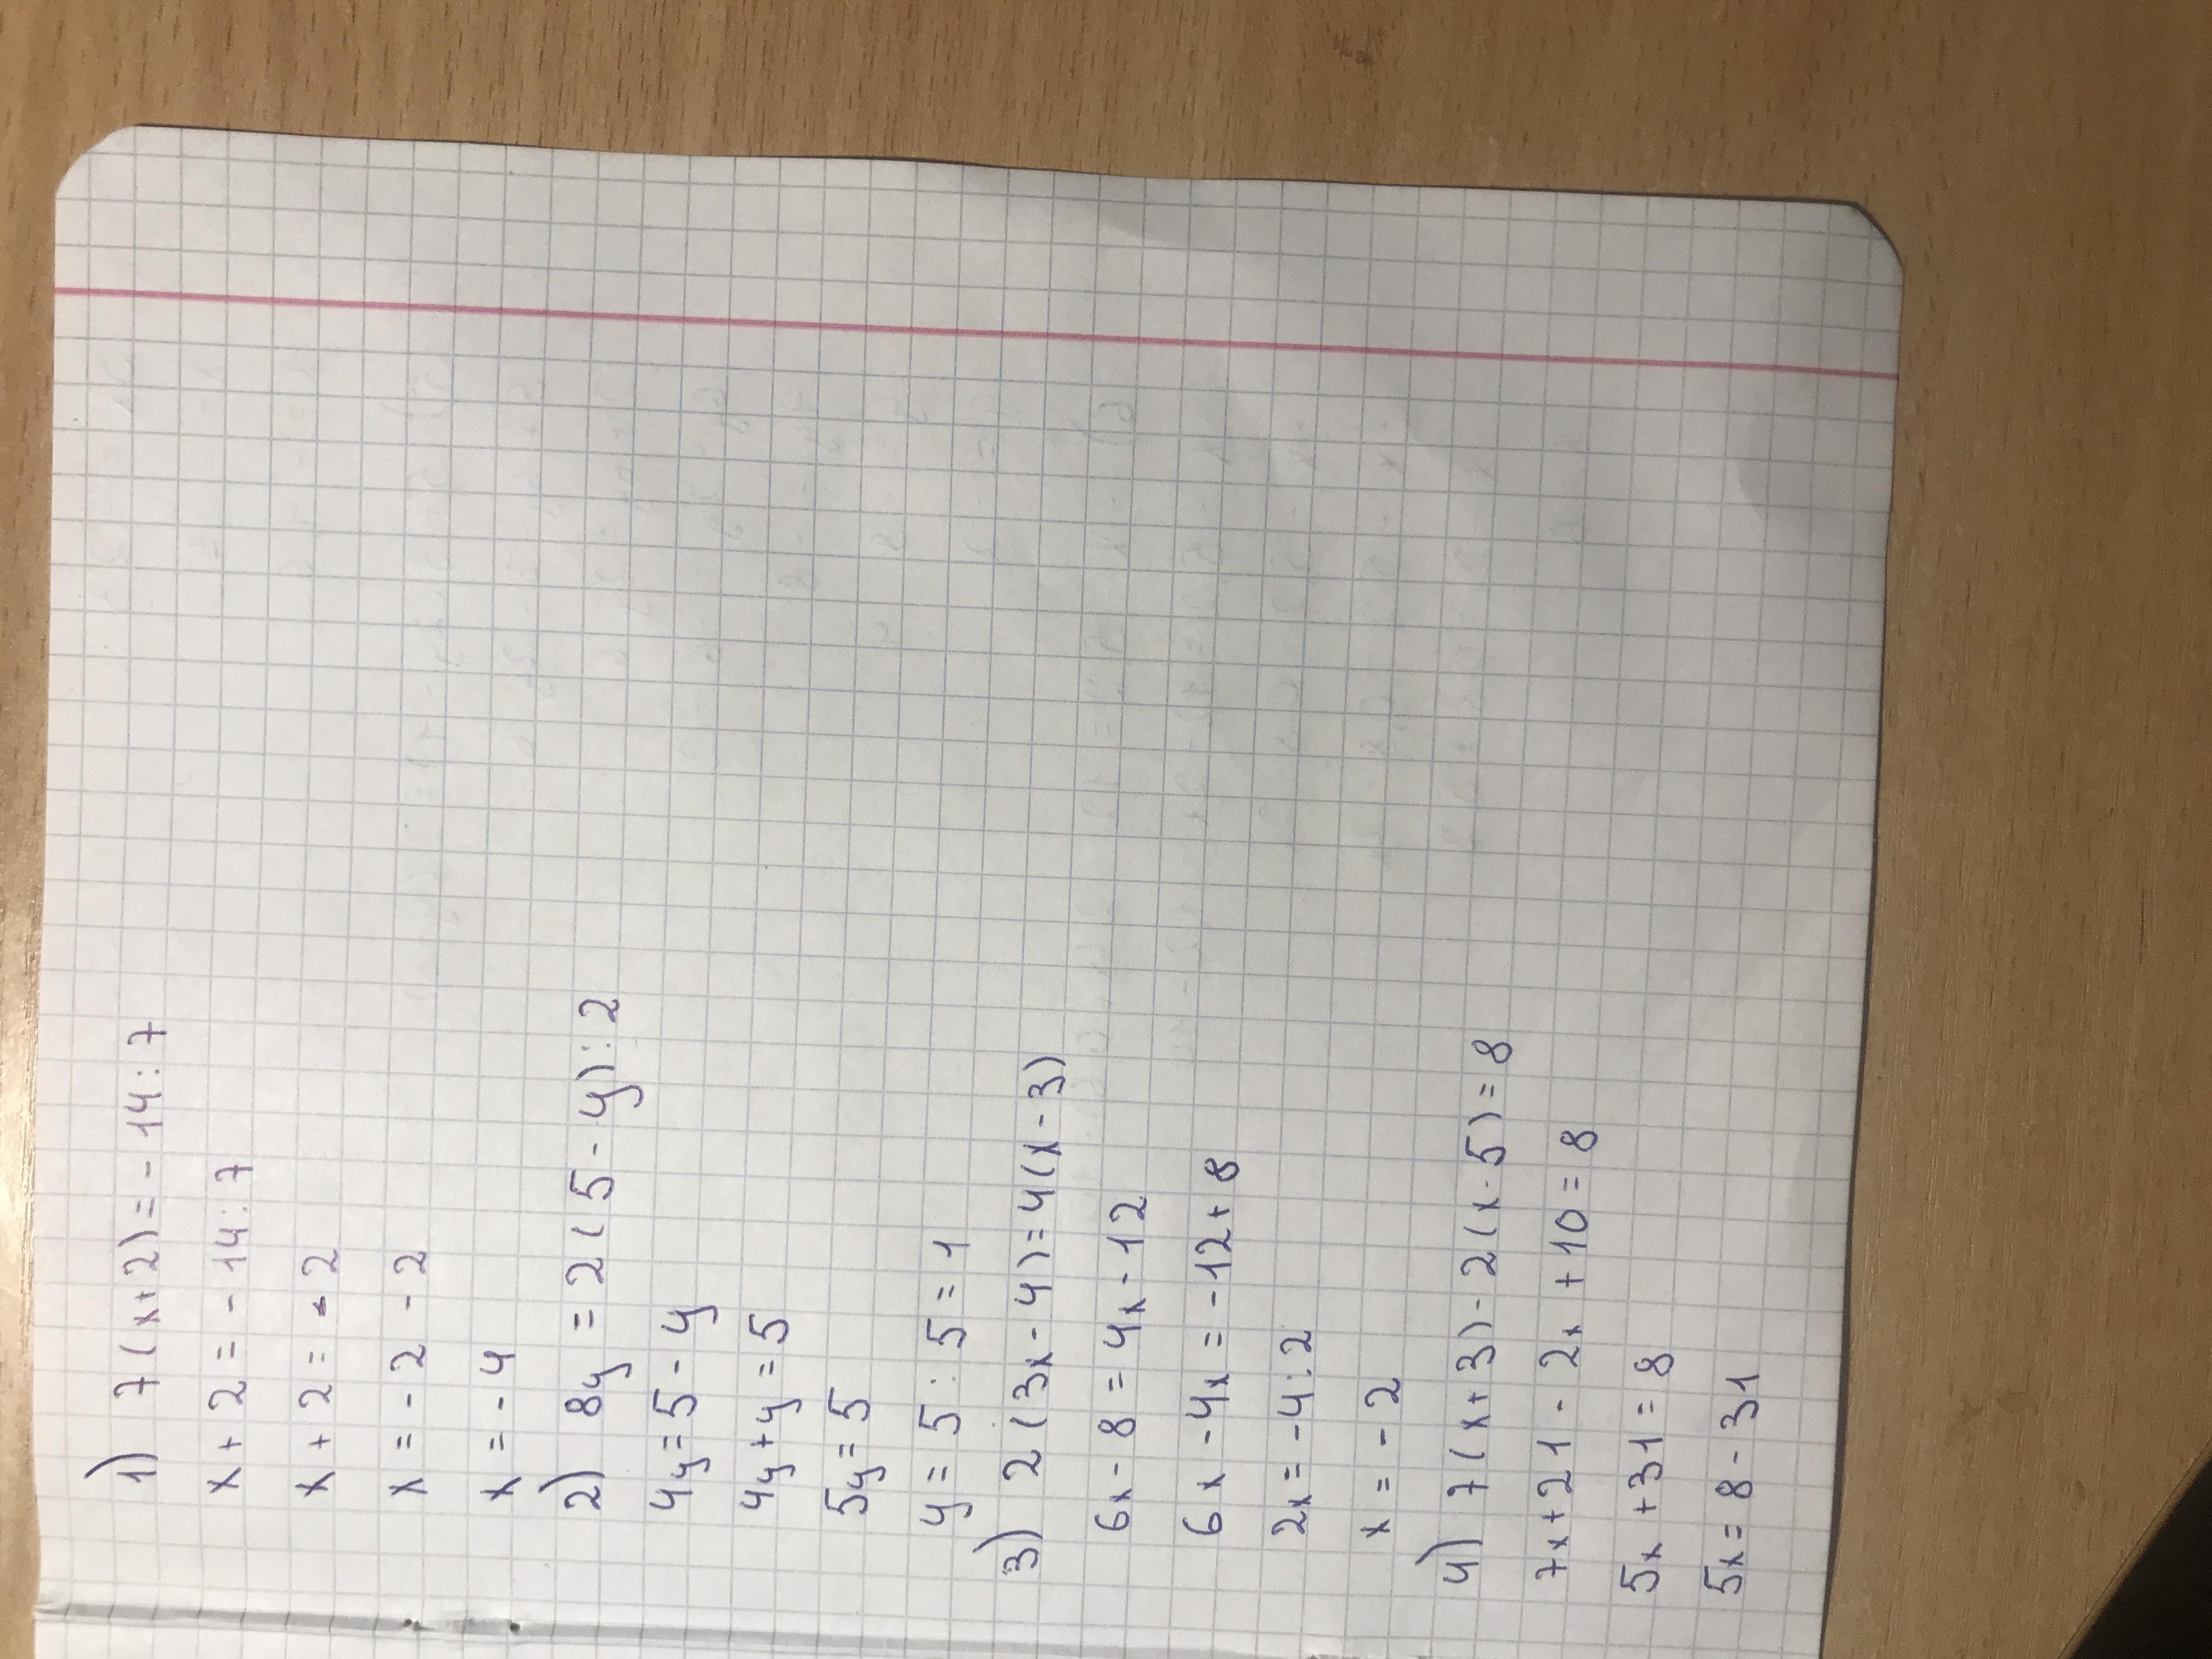 1) 7(x+2)=-14:7
x+2=-14:7
x+2=-2
x=-2-2
x=-4
2) 8y=2(5-y):2
4y=5-y
4y+y=5
5y=5
y=5:5=1
3) 2(3x-4)=4(x-3)
6x-8=4x-12
6x-4x=-12+8
2x=-4:2
x=-2
4) 7(x+3)-2(x-5)=8
7x+21-2x+10=8
5x+31=8
5x=8-31